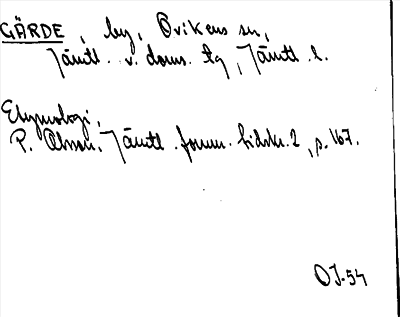 GÄRDE, by, Ovikens sn,
Jämtl. v. doms. tg, Jämtl. l.
Etymologi.
P. Olsson. Jämtl. fornm. tidskr. 2, s. 167.
OJ-54